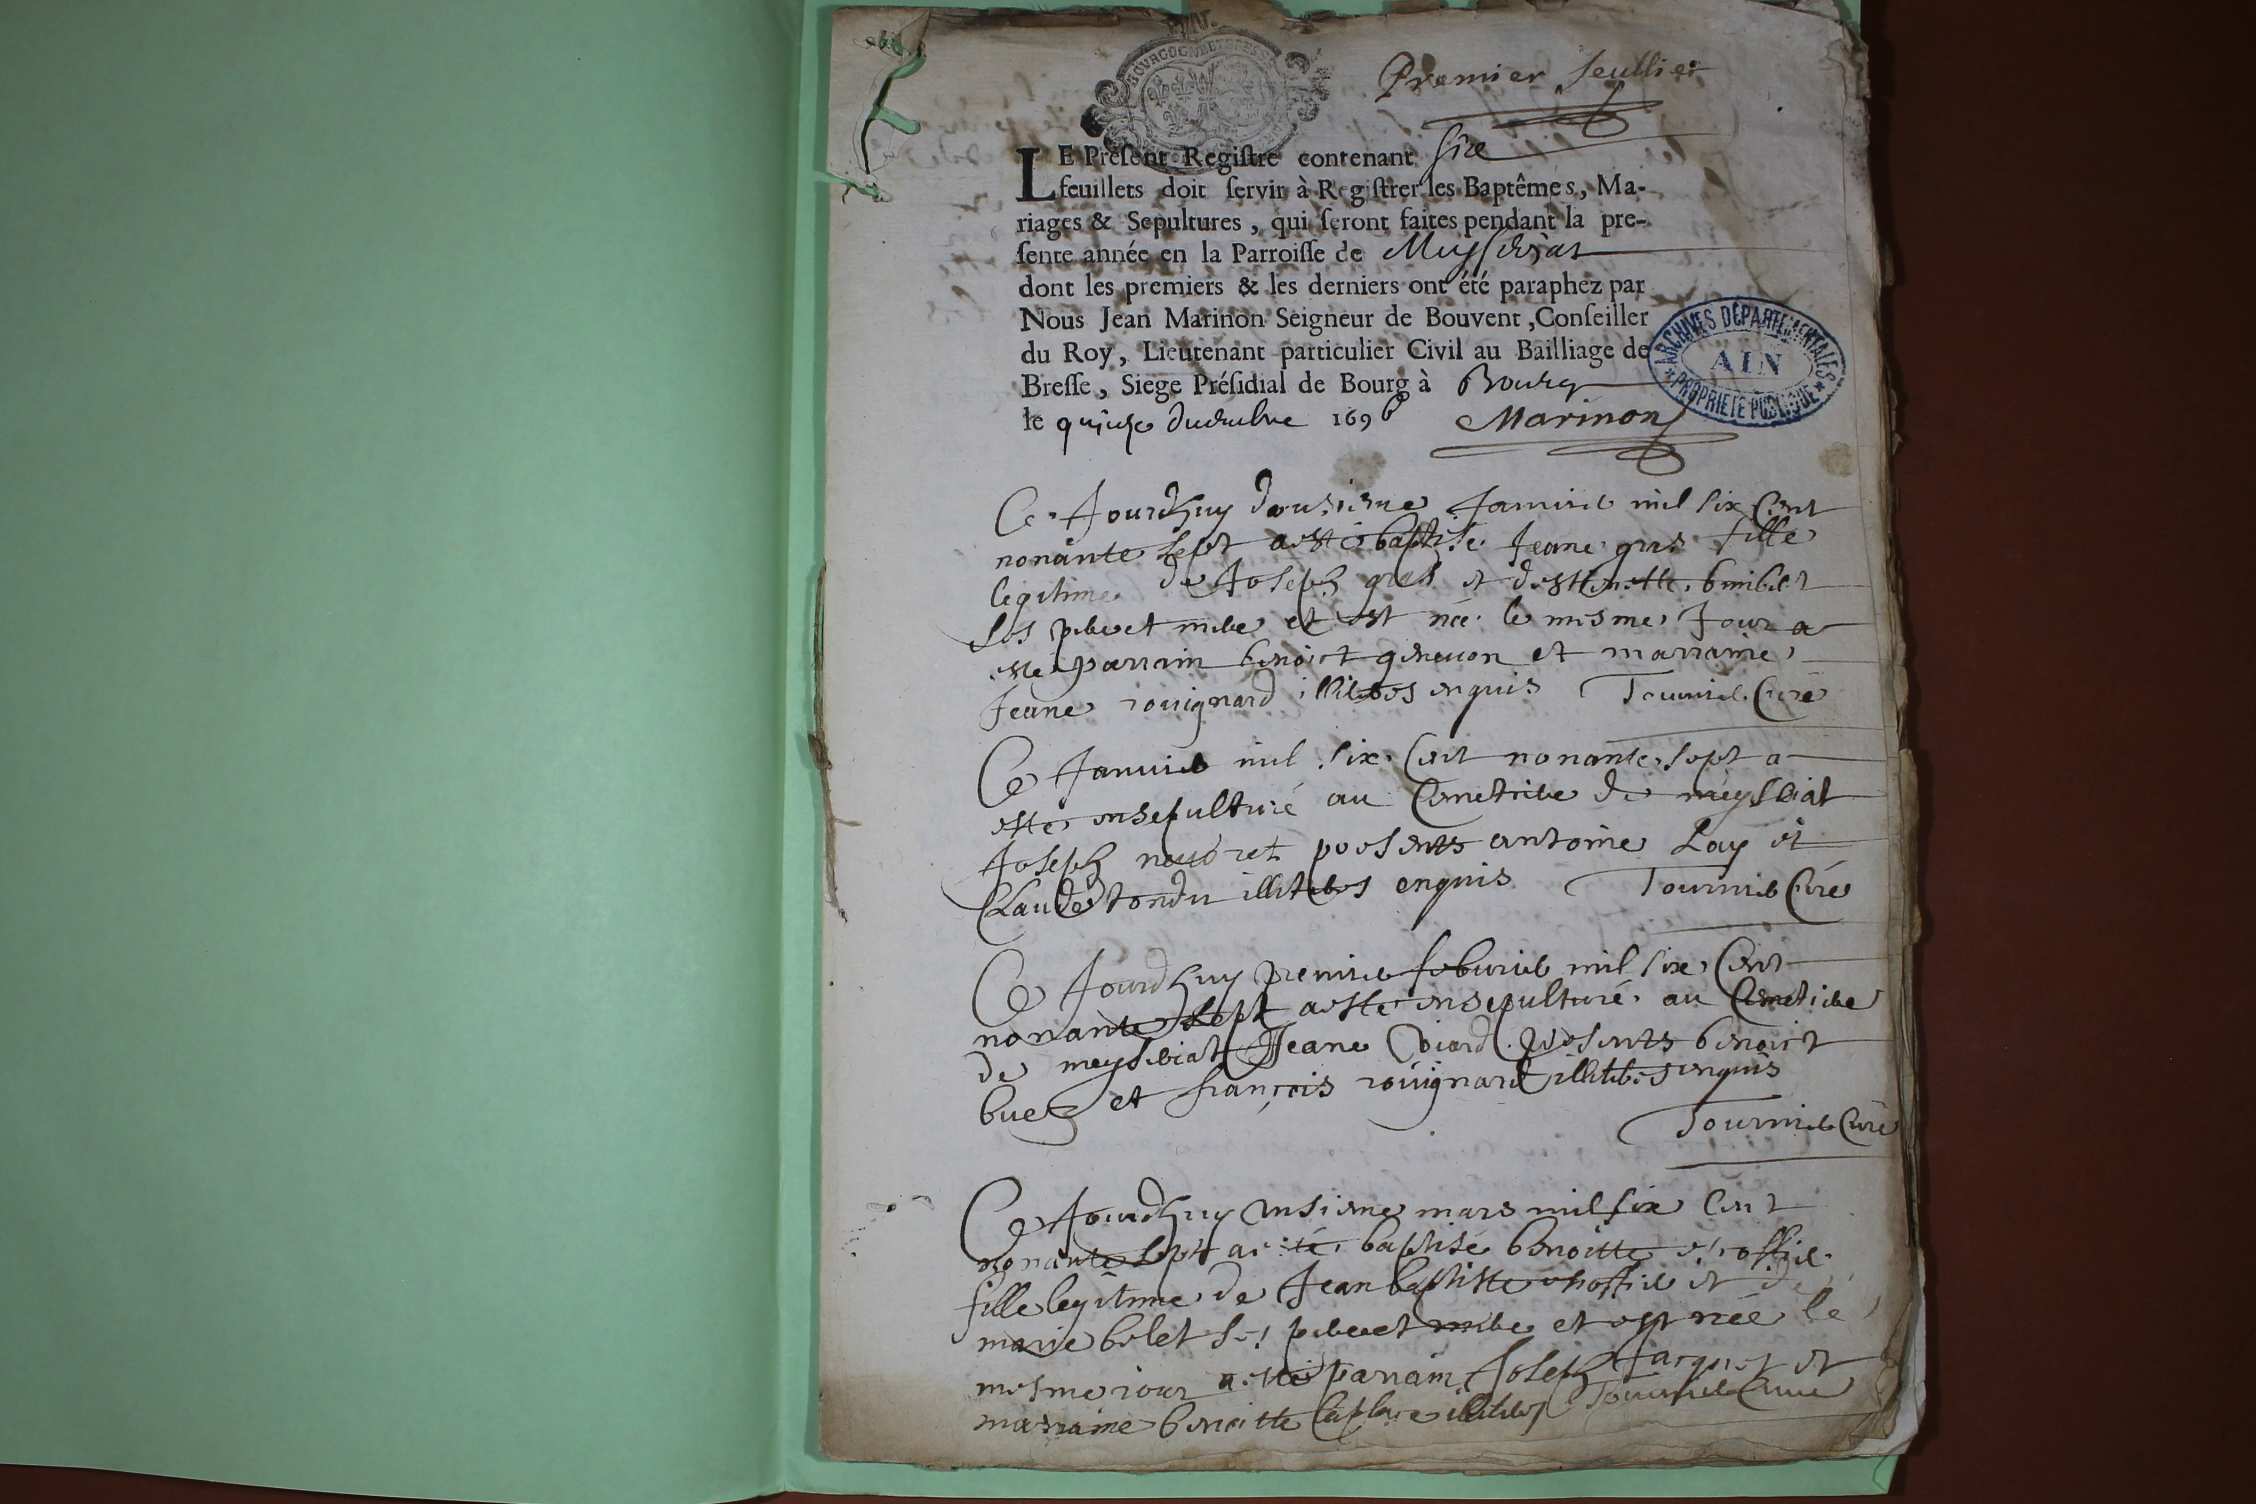 BOURGOGNE ET BRESSE
Premier feullier
LE Preſent Regiſtre contenant Six
feuillets doit ſervir à Regiſtrer les Baptêmes, Ma-
riages & Sepultures, qui ſeront faites pendant la pre-
ſente année en la Parroiſſe de
dont les premiers & les derniers ont été paraphez par
Nous Jean Marinon Seigneur de Bouvent, Conſeiller
du Roy, Lieutenant particulier Civil au Bailliage de
Breſſe, Siege Préſidial de Bourg à Bourg
le quinze 1696 Marinon
ARCHIVES DÉPARTEMENTALES
AIN
PROPRIÉTÉ PUBLIQUE
Ce Jourdhuy douzieme Janvier mil six Cent
nonante sept a esté baptisé Jeane gras fille
legitime de Joseph gras et destienette
ses pere et mere et est née le mesme Jour a
esté parrain benoict genevon et marraine
Jeane rouignard illiteres enquis Tournier Curé
Ce Janvier mil six Cent nonante sept a
esté ensepulturé au Cemetiere de meysseriat
Joseph presents antoine Lay et
Claude tondu illiteres enquis Tournier Curé
Ce Jourdhuy premier feburier mil six Cent
nonante sept a esté ensepulturé au Cemetiere
de meysseriat Jeane presents benoict
buet et françois rouignard illiteres enquis
Tournier Curé
Ce Jourdhuy onsieme mars mil six Cent
nonante sept a esté baptisé benoitte
fille legitime de Jean baptiste et de
marie belet ses pere et mere et est née le
mesme iour a esté parrain Joseph Jacquet et
marraine benoitte laplace illiteres Tournier Curé